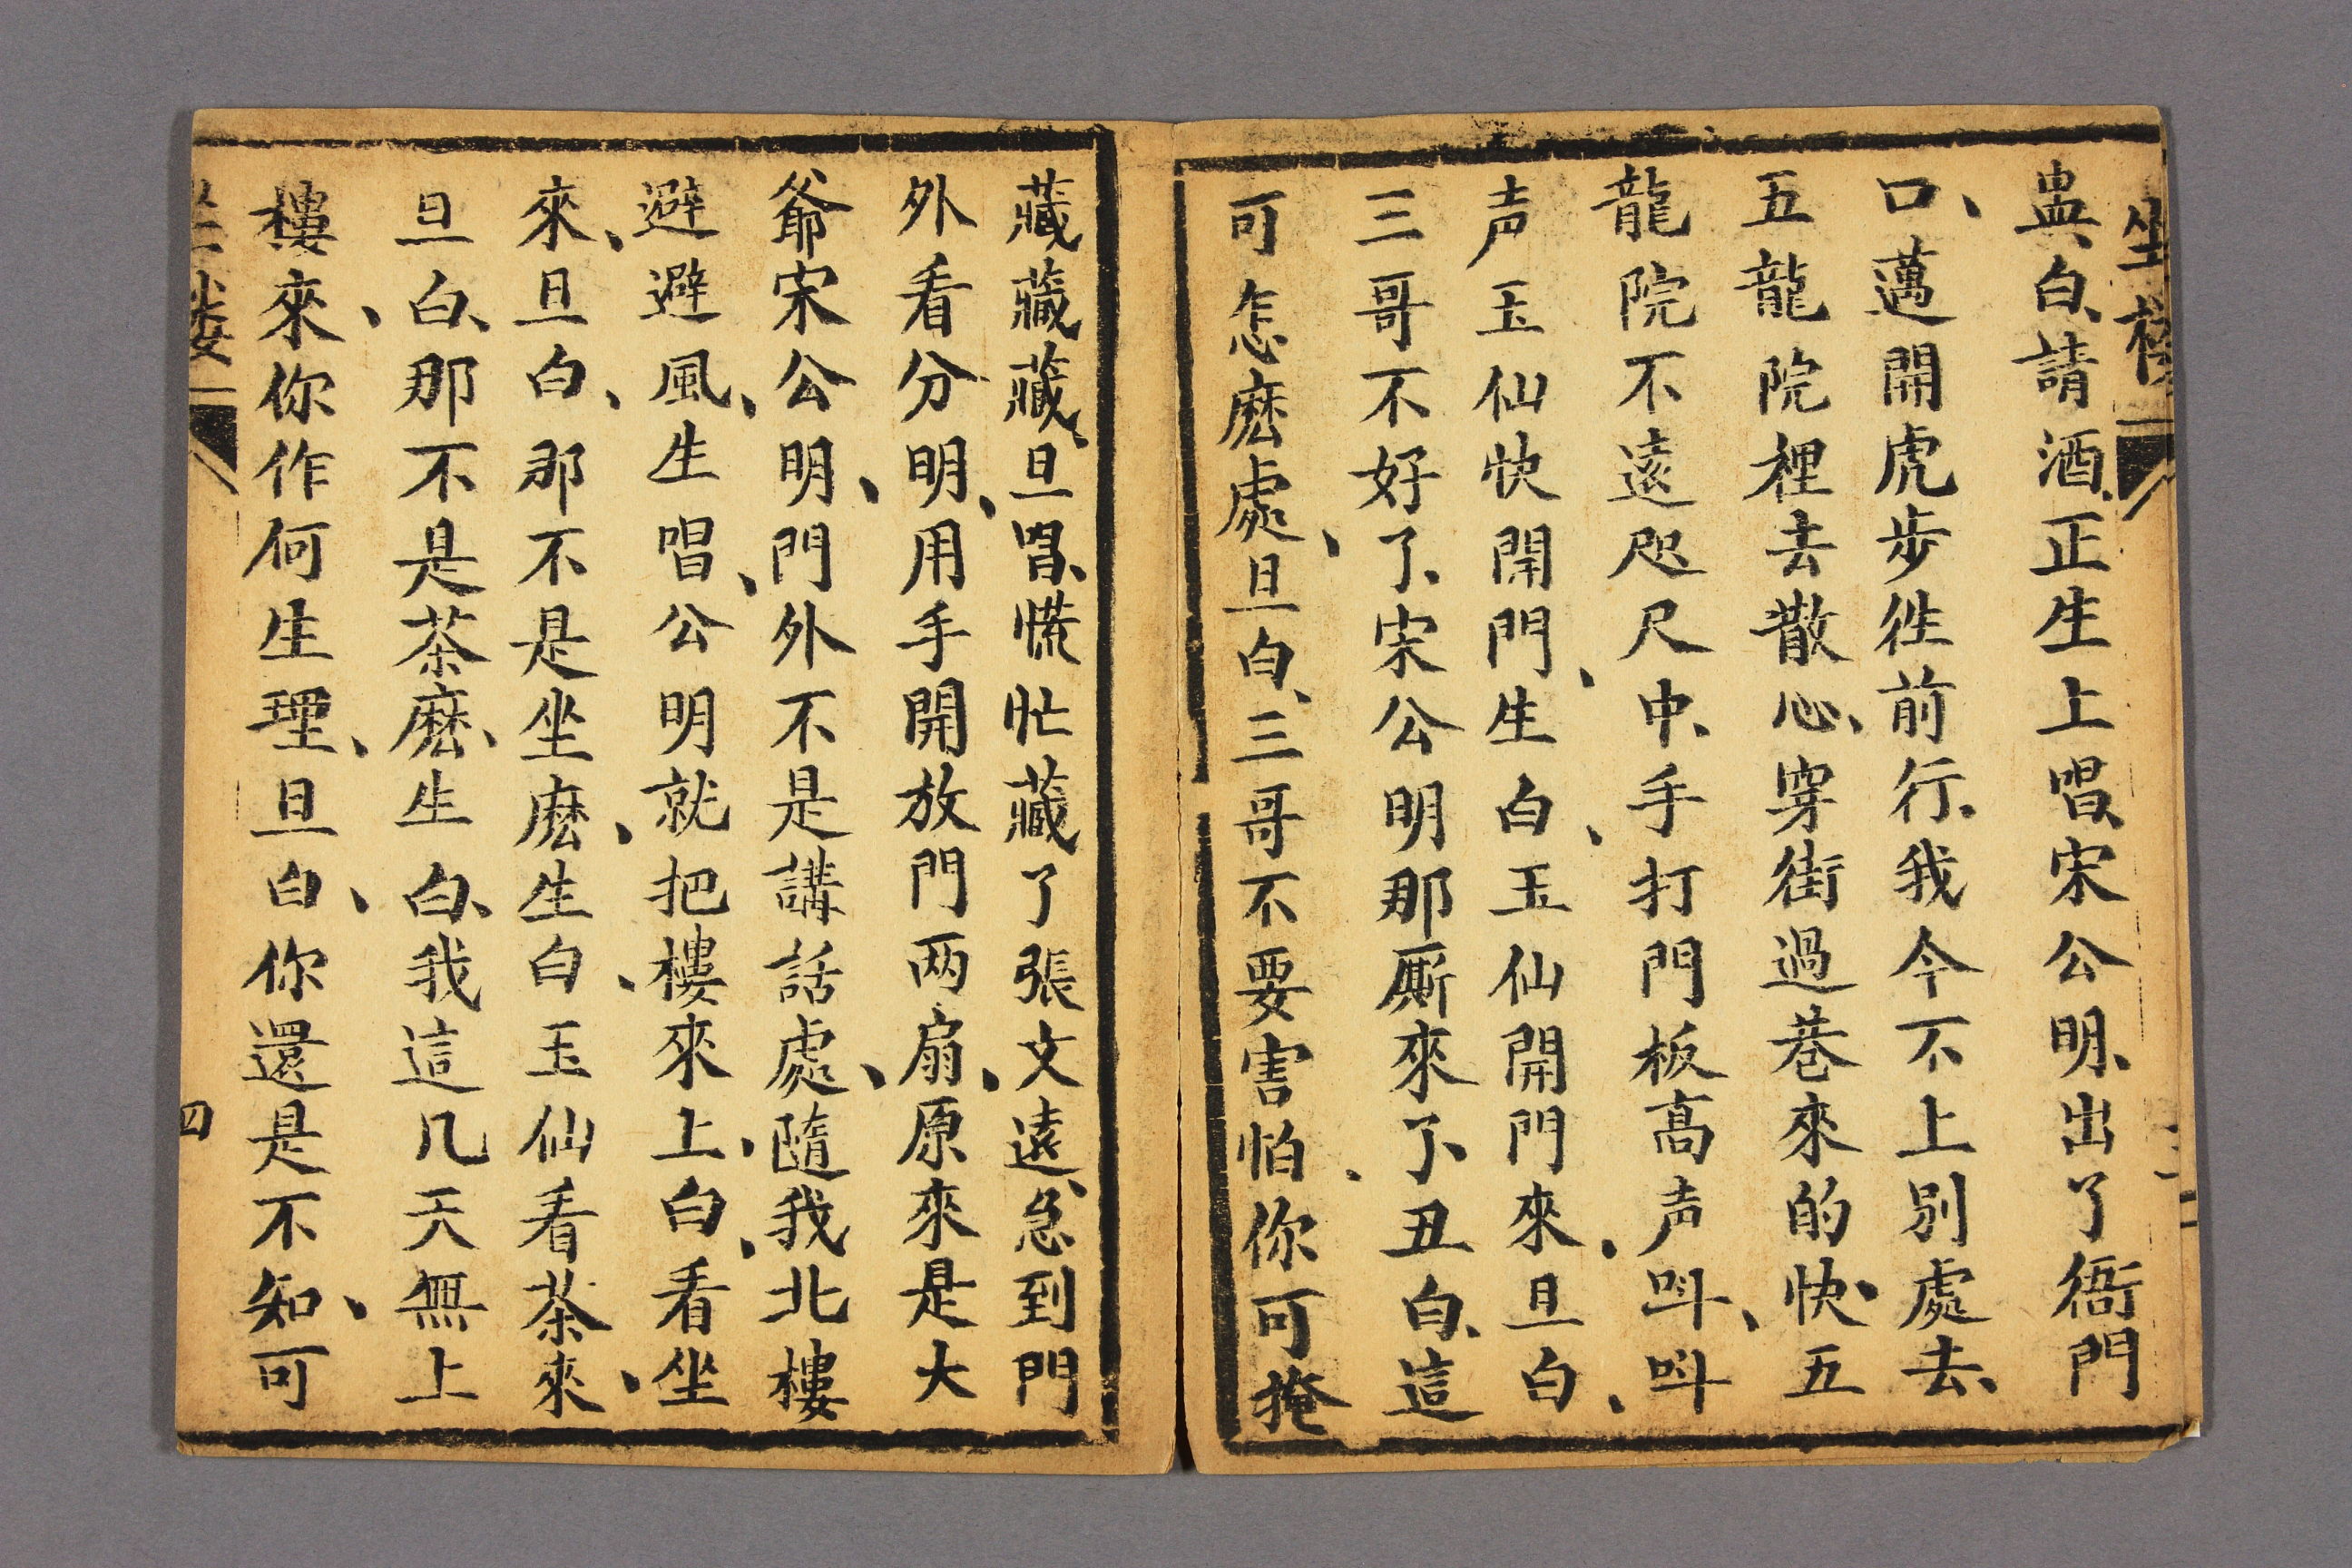 坐樓
盅白、請酒、正生上唱、宋公明、出了衙門
口、邁開虎步徃前行、我今不上别處去、
五龍院裡去散心、穿街過巷來的快、五
龍院不遠咫尺中、手打門板高声呌、呌
声玉仙快開門、生白、玉仙開門來、旦白、
三哥不好了、宋公明那厮來了、丑白、這
可怎麽處、旦白、三哥不要害怕、你可掩
藏藏藏、旦唱、慌忙藏了張文遠、急到門
外看分明、用手開放門两扇、原來是大
爺宋公明、門外不是講話處、隨我北樓
避避風、生唱、公明就把樓來上、白、看坐
來、旦白、那不是坐麽、生白、玉仙看茶來、
旦白、那不是茶麽、生白、我這几天無上
樓來、你作何生理、旦白、你還是不知、可
坐樓
四